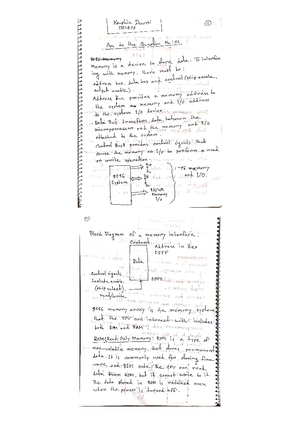 Ans to the Question No: 01
Memory is a device to store data. To interfac
ing with memory, there must be:
address bus, data bus and control (chip enable,
output enable).
Address Bus provides a memory address to
the system memory and I/O address
to the system I/O device.
Data Bus transfers data between the
microprocessor and the memory and I/O
attached to the system.
Control Bus provides control signals that
cause the memory or I/O to perform a read
or write operation.
8086
System
To memory
and I/O.
Block Diagram of a memory interface:
Control
Address in Hex
FFFF
Data
0000
Control signals
include enable,
(chip select)
read/write.
8086 memory array is the memory system
that the CPU can interact with includes
both RAM and ROM.
ROM (Read Only Memory): ROM is a type of
non-volatile memory that stores permanent
data. It is commonly used for storing firm-
ware and BIOS code. The CPU can read
data from ROM, but it cannot write to it.
The data stored in ROM is retained even
when the power is turned off.